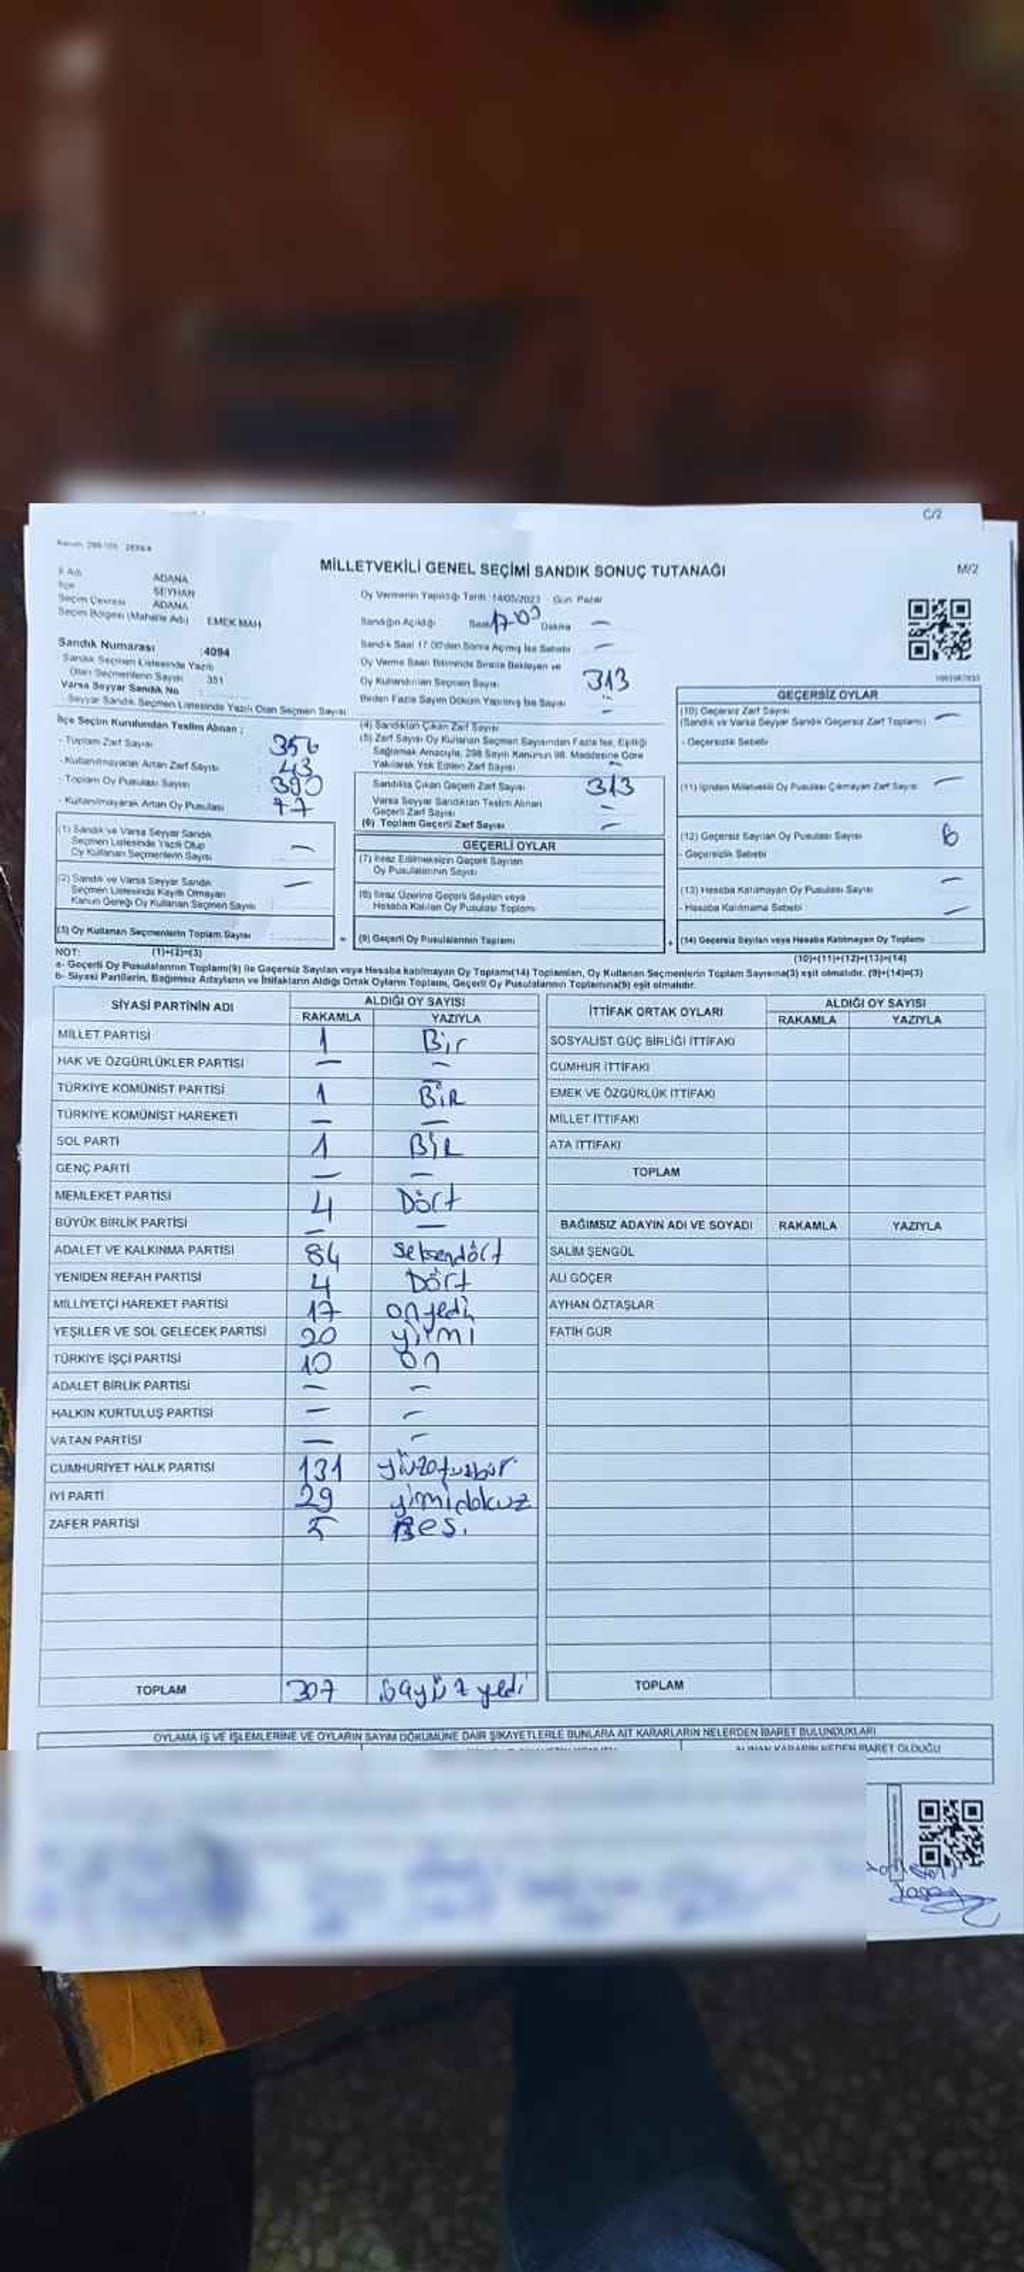 C/2
MİLLETVEKİLİ GENEL SEÇİMİ SANDIK SONUÇ TUTANAĞI
M/2
İl Adı ADANA
İlçe SEYHAN
Seçim Çevresi ADANA
Seçim Bölgesi (Mahalle Adı) EMEK MAH
Oy Vermenin Yapıldığı Tarih :14/05/2023 - Gün: Pazar
Sandığın Açıldığı Saat 17:00 Dakika —
Sandık Saat 17:00'den Sonra Açılmış İse Sebebi —
Oy Verme Saati Bitiminde Sırada Bekleyen ve —
Oy Kullandırılan Seçmen Sayısı 313
Birden Fazla Sayım Döküm Yapılmış İse Sayısı
Sandık Numarası :4094
Sandık Seçmen Listesinde Yazılı
Olan Seçmenlerin Sayısı 351
Varsa Seyyar Sandık No
Seyyar Sandık Seçmen Listesinde Yazılı Olan Seçmen Sayısı
İlçe Seçim Kurulundan Teslim Alınan ;
- Toplam Zarf Sayısı : 356
- Kullanılmayarak Artan Zarf Sayısı : 43
- Toplam Oy Pusulası Sayısı : 390
- Kullanılmayarak Artan Oy Pusulası : 77
(1) Sandık ve Varsa Seyyar Sandık
Seçmen Listesinde Yazılı Olup
Oy Kullanan Seçmenlerin Sayısı —
(2) Sandık ve Varsa Seyyar Sandık
Seçmen Listesinde Kayıtlı Olmayan
Kanun Gereği Oy Kullanan Seçmen Sayısı —
(3) Oy Kullanan Seçmenlerin Toplam Sayısı
(1)+(2)=(3)
(4) Sandıktan Çıkan Zarf Sayısı
(5) Zarf Sayısı Oy Kullanan Seçmen Sayısından Fazla İse, Eşitliği
Sağlamak Amacıyla, 298 Sayılı Kanunun 98. Maddesine Göre
Yakılarak Yok Edilen Zarf Sayısı —
Sandıkta Çıkan Geçerli Zarf Sayısı 313
Varsa Seyyar Sandıktan Teslim Alınan
Geçerli Zarf Sayısı —
(6) Toplam Geçerli Zarf Sayısı —
GEÇERLİ OYLAR
(7) İtiraz Edilmeksizin Geçerli Sayılan
Oy Pusulalarının Sayısı
(8) İtiraz Üzerine Geçerli Sayılan veya
Hesaba Katılan Oy Pusulası Toplamı
(9) Geçerli Oy Pusulalarının Toplamı
GEÇERSİZ OYLAR
(10) Geçersiz Zarf Sayısı
(Sandık ve Varsa Seyyar Sandık Geçersiz Zarf Toplamı) —
- Geçersizlik Sebebi
(11) İçinden Milletvekili Oy Pusulası Çıkmayan Zarf Sayısı —
(12) Geçersiz Sayılan Oy Pusulası Sayısı 6
- Geçersizlik Sebebi
(13) Hesaba Katılmayan Oy Pusulası Sayısı —
- Hesaba Katılmama Sebebi —
(14) Geçersiz Sayılan veya Hesaba Katılmayan Oy Toplamı
(10)+(11)+(12)+(13)=(14)
NOT:
a- Geçerli Oy Pusulalarının Toplamı(9) ile Geçersiz Sayılan veya Hesaba katılmayan Oy Toplamı(14) Toplamları, Oy Kullanan Seçmenlerin Toplam Sayısına(3) eşit olmalıdır. (9)+(14)=(3)
b- Siyasi Partilerin, Bağımsız Adayların ve İttifakların Aldığı Ortak Oyların Toplamı, Geçerli Oy Pusulalarının Toplamına(9) eşit olmalıdır.
SİYASİ PARTİNİN ADI ALDIĞI OY SAYISI
RAKAMLA YAZIYLA
MİLLET PARTİSİ 1 Bir
HAK VE ÖZGÜRLÜKLER PARTİSİ — —
TÜRKİYE KOMÜNİST PARTİSİ 1 BİR
TÜRKİYE KOMÜNİST HAREKETİ — —
SOL PARTİ 1 BİR
GENÇ PARTİ — —
MEMLEKET PARTİSİ 4 Dört
BÜYÜK BİRLİK PARTİSİ — —
ADALET VE KALKINMA PARTİSİ 84 Seksendört
YENİDEN REFAH PARTİSİ 4 Dört
MİLLİYETÇİ HAREKET PARTİSİ 17 onyedi
YEŞİLLER VE SOL GELECEK PARTİSİ 20 yirmi
TÜRKİYE İŞÇİ PARTİSİ 10 On
ADALET BİRLİK PARTİSİ — —
HALKIN KURTULUŞ PARTİSİ — —
VATAN PARTİSİ — —
CUMHURİYET HALK PARTİSİ 131 yüzotuzbir
İYİ PARTİ 29 yimidokuz
ZAFER PARTİSİ 5 Beş.
TOPLAM 307
İTTİFAK ORTAK OYLARI ALDIĞI OY SAYISI
RAKAMLA YAZIYLA
SOSYALİST GÜÇ BİRLİĞİ İTTİFAKI
CUMHUR İTTİFAKI
EMEK VE ÖZGÜRLÜK İTTİFAKI
MİLLET İTTİFAKI
ATA İTTİFAKI
TOPLAM
BAĞIMSIZ ADAYIN ADI VE SOYADI RAKAMLA YAZIYLA
SALİM ŞENGÜL
ALİ GÖÇER
AYHAN ÖZTAŞLAR
FATİH GÜR
TOPLAM
OYLAMA İŞ VE İŞLEMLERİNE VE OYLARIN SAYIM DÖKÜMÜNE DAİR ŞİKAYETLERLE BUNLARA AİT KARARLARIN NELERDEN İBARET BULUNDUKLARI
ALINAN KARARIN NEDEN İBARET OLDUĞU